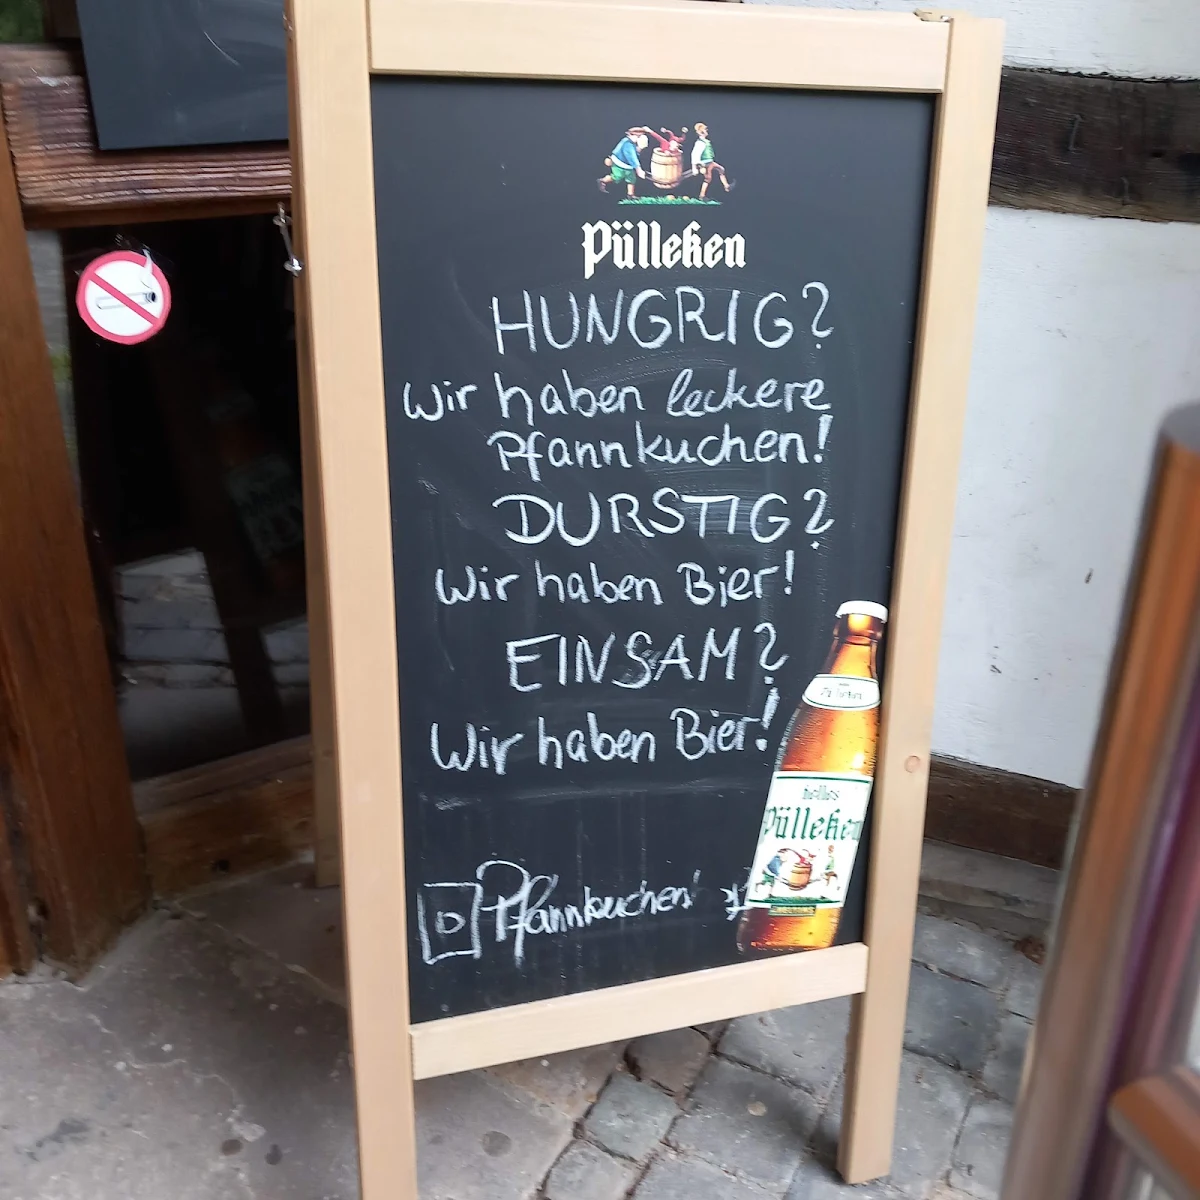 Pülleken
HUNGRIG?
Wir haben leckere
Pfannkuchen!
DURSTIG?
Wir haben Bier!
EINSAM?
Wir haben Bier!
Pülleken
helles
Pülleken
Pfannkuchen!